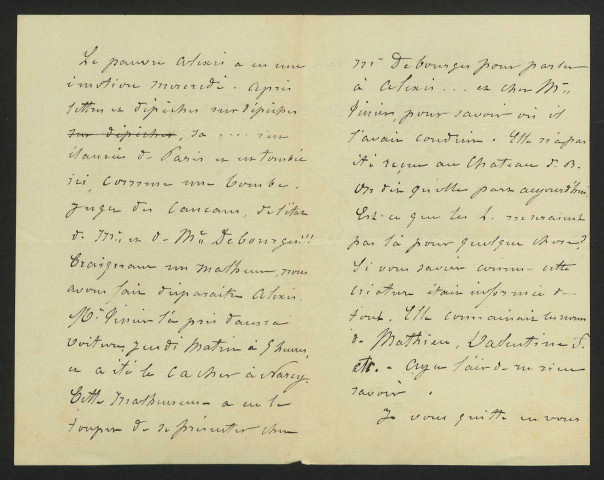 Le pauvre Alexis a eu une
émotion mercredi. Après
lettres et dépêches sur dépêches
sur dépêches, sa .... s'en
élancée de Paris et en tombée
ici, comme une bombe.
Jugez des cancans, de l'état
de Mr et de Me Debourges!!!
Craignant un malheur, nous
avons fait disparaître Alexis.
Mr l'a pris dans sa
voiture, jeudi matin à 5 heures,
et a été le cacher à Narcy.
Cette malheureuse a eu le
toupet de se présenter chez
Mr Debourges pour parler
à Alexis ... et chez Mr
pour savoir où il
l'avait conduit. Elle n'a pas
été reçue au Chateau de B.
On dit qu'elle part aujourd'hui
Est-ce que les L. ne seraient
pas là pour quelque chose?
Si vous saviez comme cette
créature était informée de
tout. Elle connaissait les noms
de Mathieu, Valentine S.
etc. - Ayez l'air de ne rien
savoir.
Je vous quitte en vous